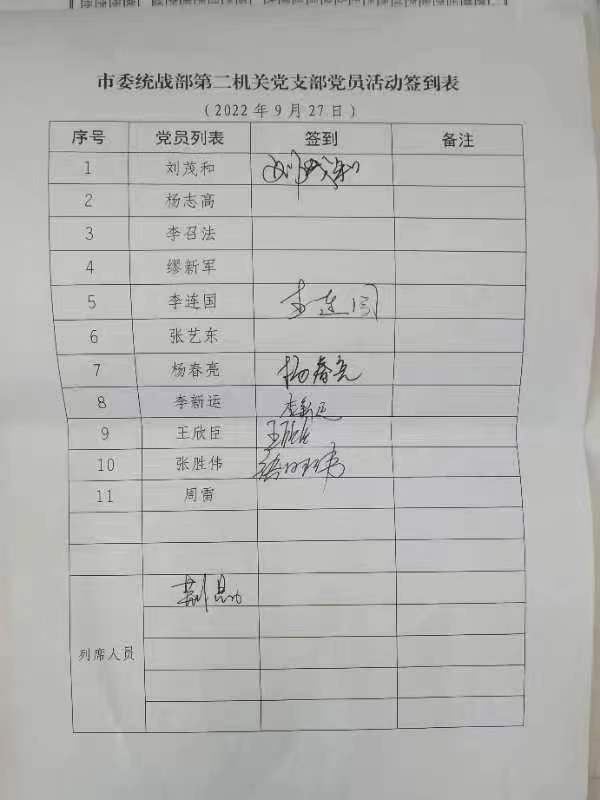 市委统战部第二机关党支部党员活动签到表
（2022年9月27日）
序号 党员列表 签到 备注
1 刘茂和 刘茂和
2 杨志高
3 李召法
4 缪新军
5 李连国 李连国
6 张艺东
7 杨春亮 杨春亮
8 李新运 李新运
9 王欣臣 王欣臣
10 张胜伟
11 周雷
列席人员